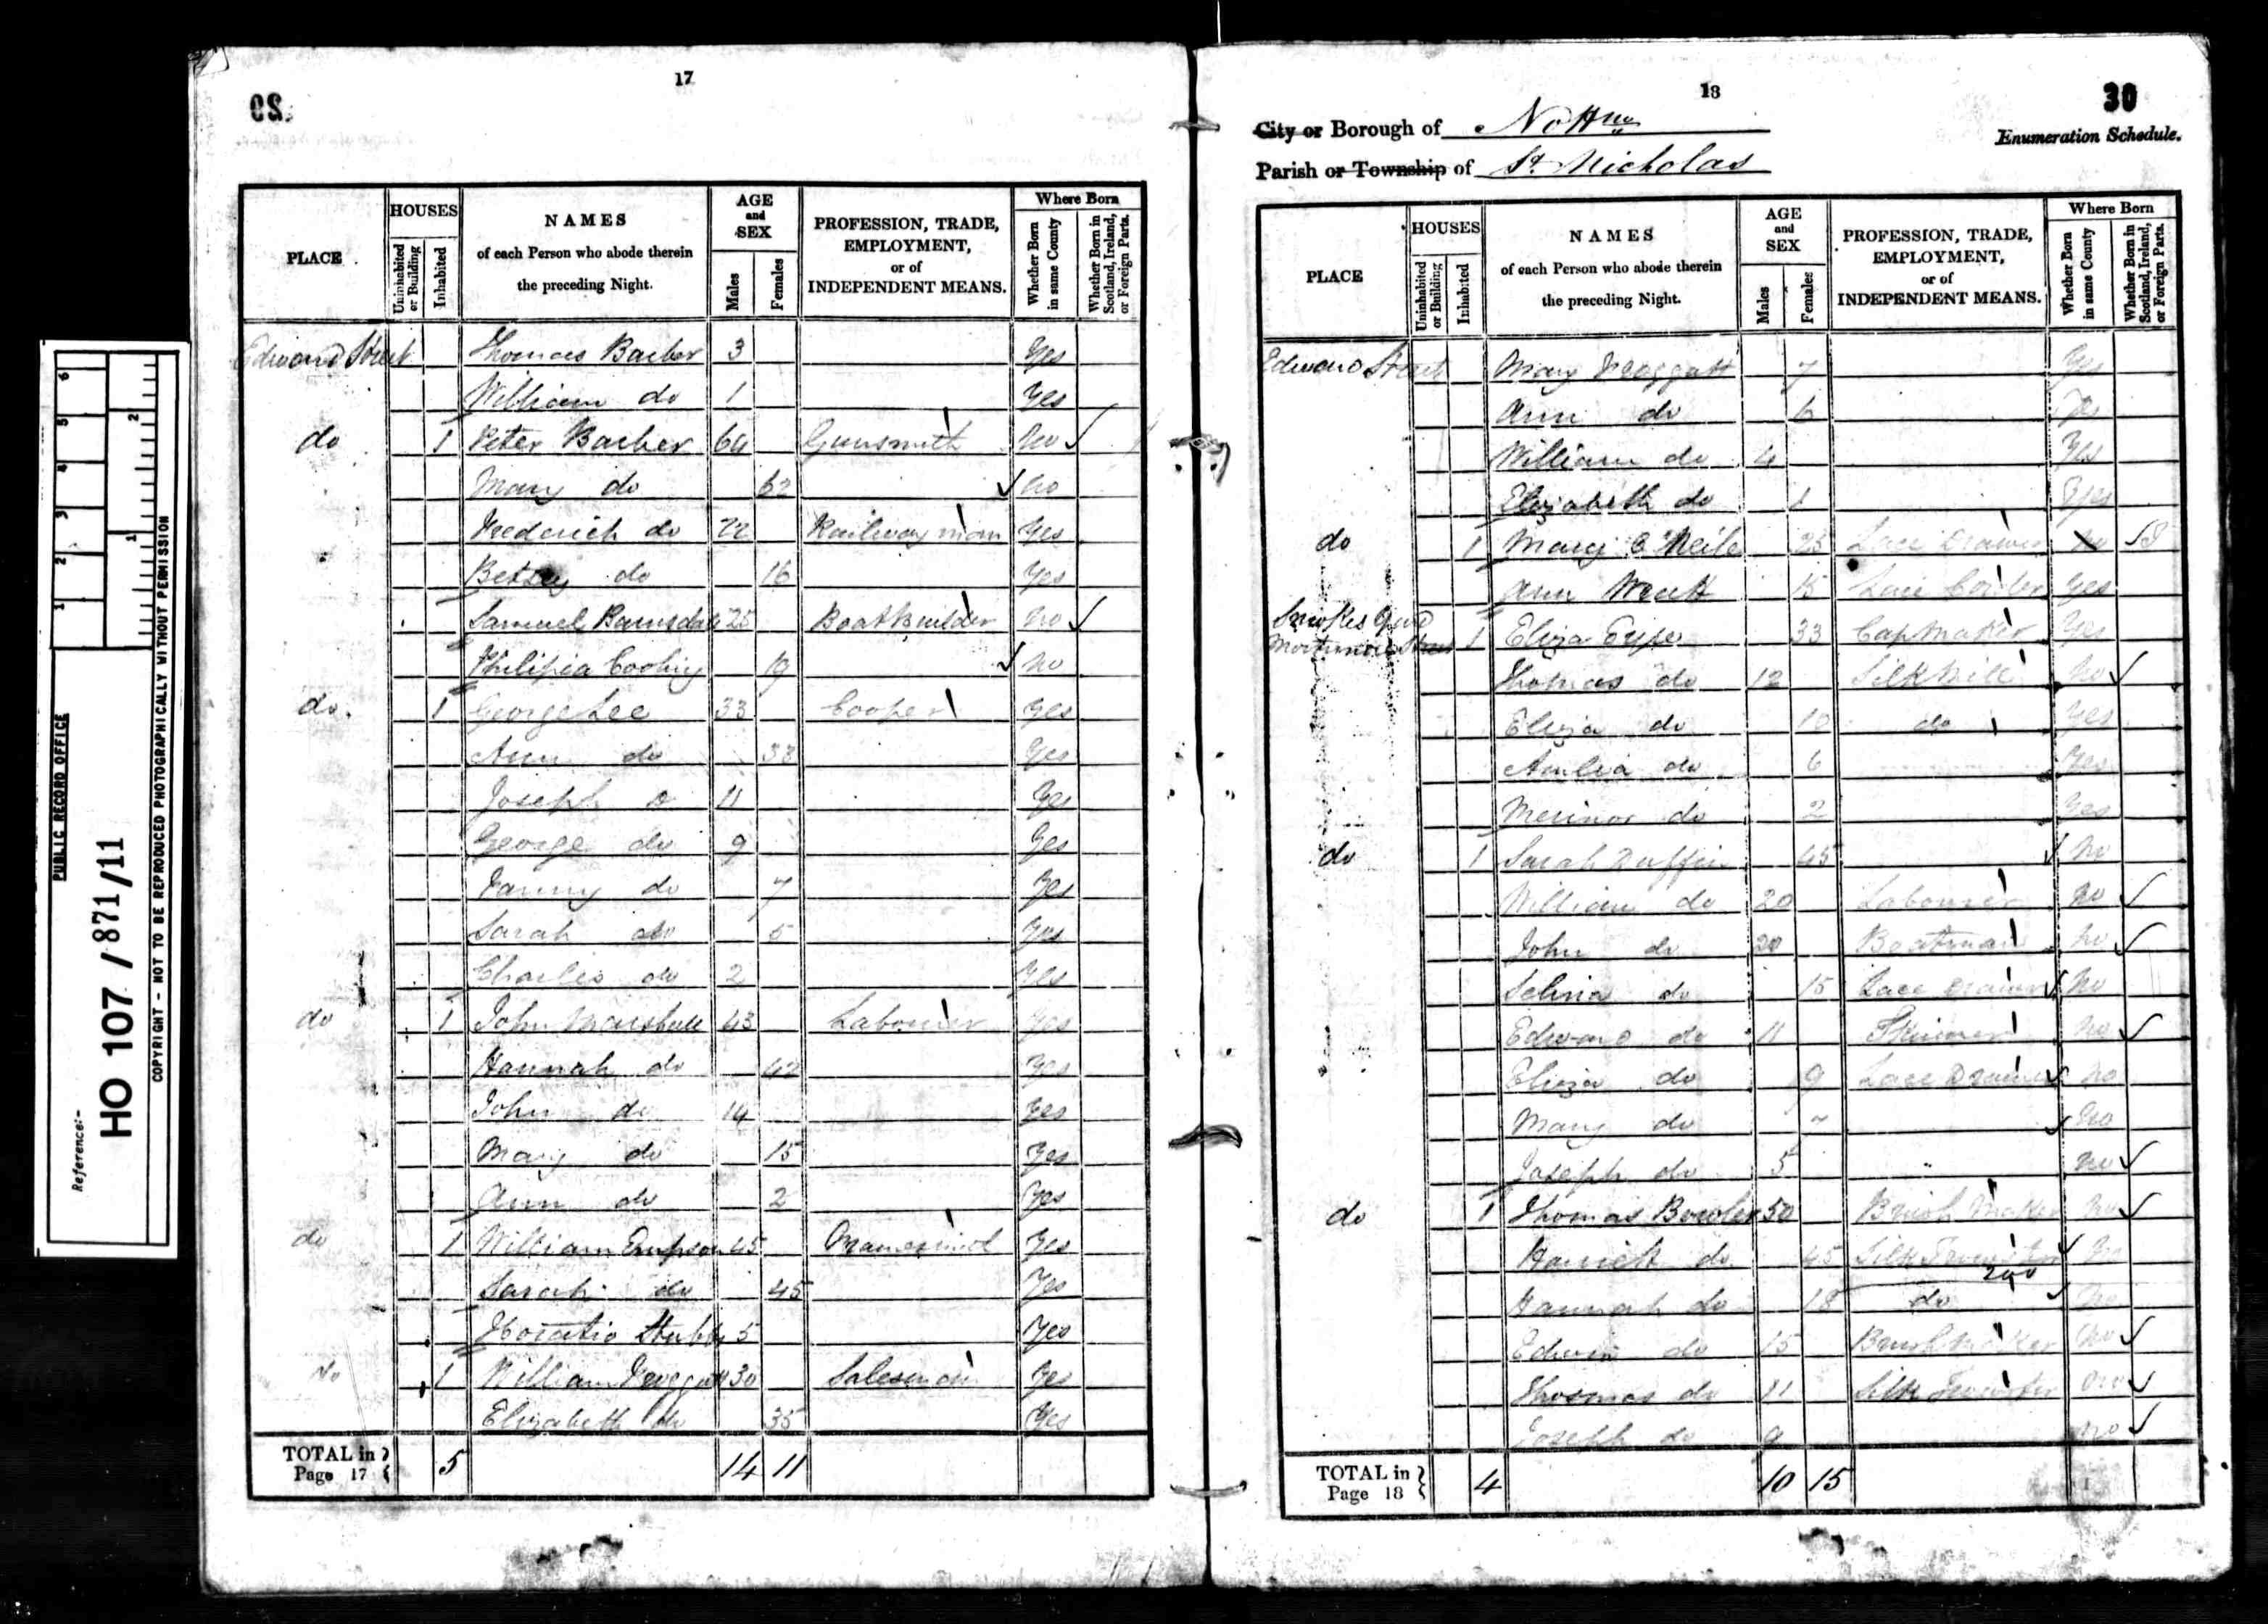 PUBLIC RECORD OFFICE
Reference:-
HO 107 / 871 / 11
COPYRIGHT - NOT TO BE REPRODUCED PHOTOGRAPHICALLY WITHOUT PERMISSION
1 2 3 4 5 6
1 2
17
PLACE
HOUSES
Uninhabited or Building
Inhabited
NAMES
of each Person who abode therein
the preceding Night.
AGE
and
SEX
Males
Females
PROFESSION, TRADE,
EMPLOYMENT,
or of
INDEPENDENT MEANS.
Where Born
Whether Born in same County
Whether Born in Scotland, Ireland, or Foreign Parts.
Edward Street Thomas Barber 3 Yes
William do 1 Yes
do 1 Peter Barber 64 Gunsmith no
Mary do 62 no
Frederick do 22 Railway man Yes
Betsey do 16 Yes
Samuel Barnsdale 25 Boat Builder no
Philipia 19 no
do 1 George Lee 33 Cooper Yes
Ann do 33 Yes
Joseph do 11 Yes
George do 9 Yes
Fanny do 7 Yes
Sarah do 5 Yes
Charles do 2 Yes
do 1 John Marshall 43 Labourer Yes
Hannah do 42 Yes
John do 14 Yes
Mary do 15 Yes
Ann do 2 Yes
do 1 William Empson 45 Yes
Sarah do 45 Yes
Horatio Stubbs 5 Yes
do 1 William Froggatt 30 Salesman Yes
Elizabeth do 35 Yes
TOTAL in
Page 17 5 14 11
18
30
City or Borough of Nottm
Enumeration Schedule.
Parish or Township of St. Nicholas
PLACE
HOUSES
Uninhabited or Building
Inhabited
NAMES
of each Person who abode therein
the preceding Night.
AGE
and
SEX
Males
Females
PROFESSION, TRADE,
EMPLOYMENT,
or of
INDEPENDENT MEANS.
Where Born
Whether Born in same County
Whether Born in Scotland, Ireland, or Foreign Parts.
Edward Street Mary Froggatt 7 Yes
Ann do 6 Yes
William do 4 Yes
Elizabeth do 1 Yes
do 1 Mary O Neile 25 Lace Drawer no I
Ann 15 Lace Yes
Yard
Mortimore Street 1 Eliza 33 Cap Maker Yes
Thomas do 12 Silk Mill no
Eliza do 10 do Yes
Amelia do 6 Yes
Merinor do 2 Yes
do 1 Sarah Duffin 45 no
William do 20 Labourer no
John do 20 Boatman no
Selina do 15 Lace Drawer no
Edward do 11 no
Eliza do 9 Lace Drawer no
Mary do 7 no
Joseph do 5 no
do 1 Thomas Bowler 50 Brush Maker no
Harriett do 45 Silk no
Hannah do 18 do no
Edwin do 15 Brush Maker no
Thomas do 11 Silk no
Joseph do 9 no
TOTAL in
Page 18 4 10 15